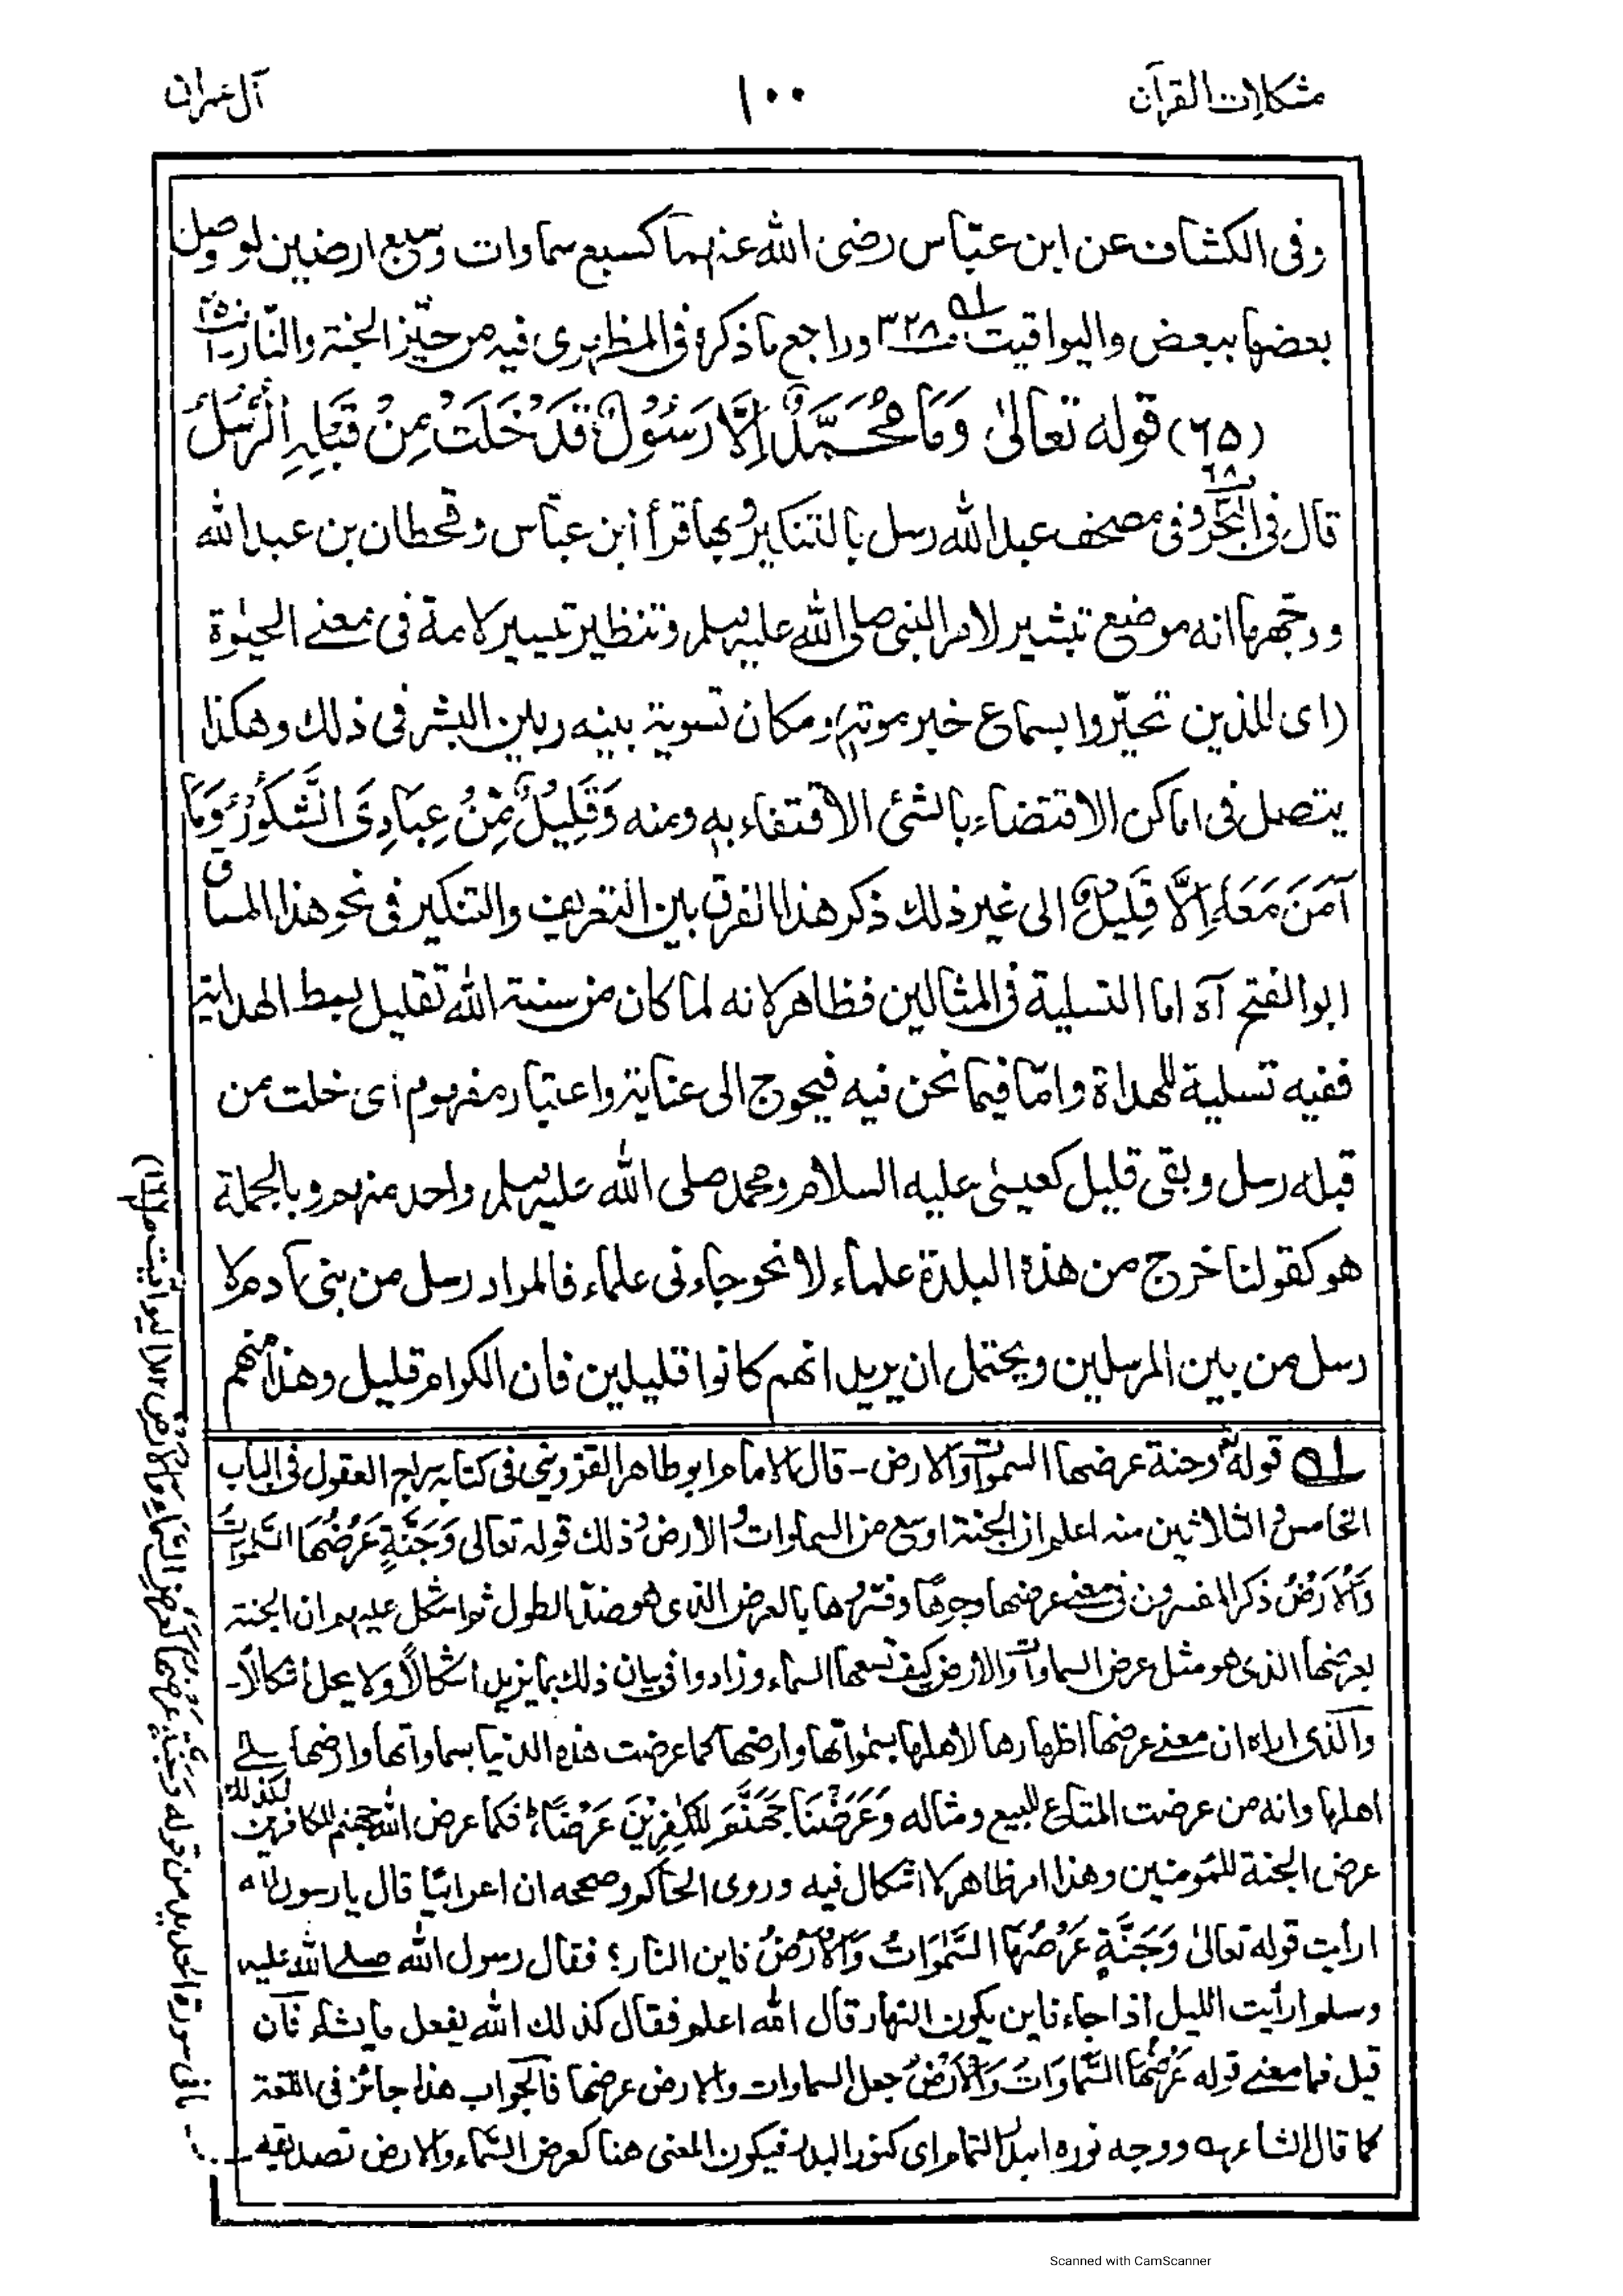 مشكلات القرآن
١٠٠
آل عمران
وفى الكشاف عن ابن عبّاس رضى الله عنهما كسبع سماوات وسبع ارضين لو وصل
بعضها ببعض واليواقيت ٣٢٨ وراجع ما ذكره فى المظهرى فيه من حيّز الجنة والنار
(٦٥) قوله تعالىٰ وَمَا مُحَمَّدٌ اِلَّا رَسُوْلٌ قَدْ خَلَتْ مِنْ قَبْلِهِ الرُّسُلُ
قال فى البحر ٦٨ وفى مصحف عبد الله رسل بالتنكير وبها قرأ ابن عبّاس وقحطان بن عبد الله
ووجهها انه موضع تبشير لامر النبى صلى الله عليه وسلم وتنظير تيسير لامة فى معنے الحيٰوة
(اى للذين تحيّروا بسماع خبر موته) ومكان تسوية بينه وبين البشر فى ذلك وهكذا
يتصل فى اماكن الاقتضاء بالشئ الاقتفاء به ومنه وَقَلِيْلٌ مِّنْ عِبَادِىَ الشَّكُوْرُ وَمَا
آمَنَ مَعَهٗ اِلَّا قَلِيْلٌ الى غير ذلك ذكر هذا الفرق بين التعريف والتنكير فى نحو هذا المساق
ابو الفتح آه اما التسلية فى المثالين فظاهر لانه لما كان من سنة الله تقليل بسط الهداية
ففيه تسلية للهداة وامّا فيما نحن فيه فيحوج الى عناية واعتبار مفهوم اى خلت من
قبله رسل وبقى قليل كعيسٰى عليه السلام ومحمد صلى الله عليه وسلم واحد منهم وبالجملة
هو كقولنا خرج من هذه البلدة علماء لا نحو جاءنى علماء فالمراد رسل من بنى آدم لا
رسل من بين المرسلين ويحتمل ان يريد انهم كانوا قليلين فان الكرام قليل وهذا منهم
له قوله وجنة عرضها السموات والارض - قال الامام ابو طاهر القزوينى فى كتابه سراج العقول فى الباب
الخامس والثلاثين منه اعلم ان الجنة اوسع من السماوات والارض وذلك قوله تعالى وَجَنَّةٍ عَرْضُهَا السَّمٰوَاتُ
وَالْاَرْضُ ذكر المفسرون فى معنى عرضها وجوهًا وفسروها بالعرض الذى هو ضد الطول ثم اشكل عليهم ان الجنة
بعرضها الذى هو مثل عرض السماوات والارض كيف تسعها السماء وزادوا فى بيان ذلك بما يزيد اشكالًا ولا يحل اشكالًا -
والذى اراه ان معنے عرضها اظهارها لاهلها بسمٰواتها وارضها كما عرضت هذه الدنيا بسماواتها وارضها علے
اهلها وانه من عرضت المتاع للبيع ومثاله وَعَرَضْنَا جَهَنَّمَ لِلْكٰفِرِيْنَ عَرْضًا؛ فكما عرض الله جهنم للكافرين كذلك
عرض الجنة للمؤمنين وهذا امر ظاهر لا اشكال فيه وروى الحاكم وصححه ان اعرابيًا قال يا رسول الله
ارأيت قوله تعالىٰ وَجَنَّةٍ عَرْضُهَا السَّمٰوَاتُ وَالْاَرْضُ فاين النار؟ فقال رسول الله صلے الله عليه
وسلم ارأيت الليل اذا جاء فاين يكون النهار قال الله اعلم فقال كذلك الله يفعل ما يشاء فان
قيل فما معنے قوله عَرْضُهَا السَّمَاوَاتُ وَالْاَرْضُ جعل السماوات والارض عرضها فالجواب هذا جائز فى اللغة
كما قال الشاعر ووجه نوره البدر التمام اى كنور البدر فيكون المعنى هنا كعرض السماء والارض تصديقه
ما فى سورة الحديد من قوله وَجَنَّةٍ عَرْضُهَا كَعَرْضِ السَّمَاءِ وَالْاَرْضِ ١٢ (اليواقيت
Scanned with CamScanner